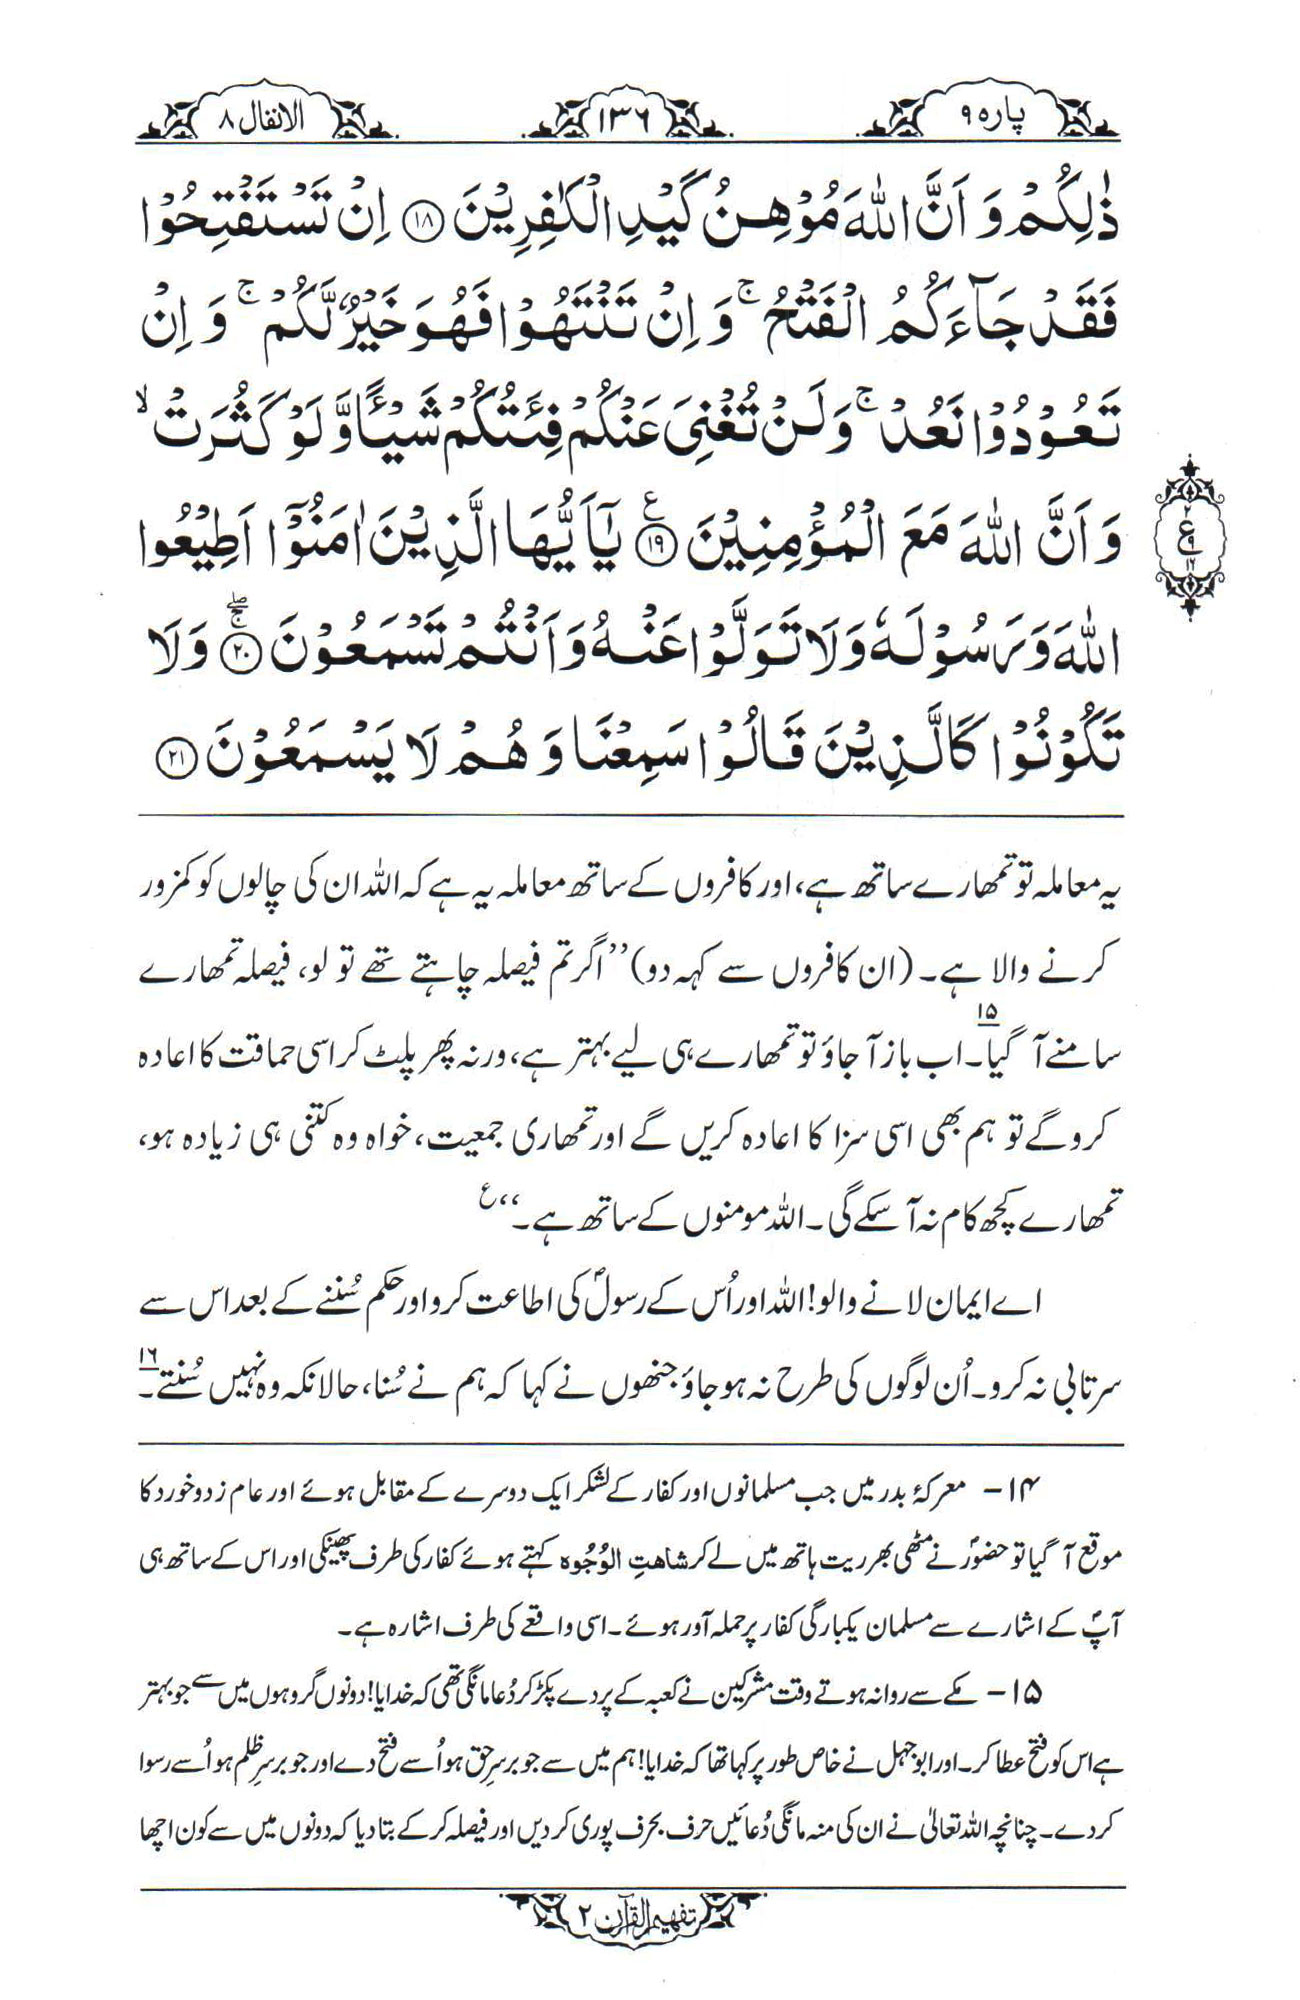 پارہ ۹
۱۳۶
الانفال ۸
ذٰلِكُمْ وَ اَنَّ اللّٰهَ مُوْهِنُ كَيْدِ الْكٰفِرِيْنَ ۝۱۸ اِنْ تَسْتَفْتِحُوْا
فَقَدْ جَآءَكُمُ الْفَتْحُ ۚ وَ اِنْ تَنْتَهُوْا فَهُوَ خَيْرٌ لَّكُمْ ۚ وَ اِنْ
تَعُوْدُوْا نَعُدْ ۚ وَلَنْ تُغْنِيَ عَنْكُمْ فِئَتُكُمْ شَيْـًٔا وَّ لَوْ كَثُرَتْ ۙ
وَ اَنَّ اللّٰهَ مَعَ الْمُؤْمِنِيْنَ ۝۱۹ع يٰٓاَيُّهَا الَّذِيْنَ اٰمَنُوْٓا اَطِيْعُوا
اللّٰهَ وَ رَسُوْلَهٗ وَلَا تَوَلَّوْا عَنْهُ وَ اَنْتُمْ تَسْمَعُوْنَ ۝۲۰ وَلَا
تَكُوْنُوْا كَالَّذِيْنَ قَالُوْا سَمِعْنَا وَ هُمْ لَا يَسْمَعُوْنَ ۝۲۱
یہ معاملہ تو تمھارے ساتھ ہے، اور کافروں کے ساتھ معاملہ یہ ہے کہ اللہ ان کی چالوں کو کمزور
کرنے والا ہے۔ (ان کافروں سے کہہ دو) ”اگر تم فیصلہ چاہتے تھے تو لو، فیصلہ تمھارے
سامنے آ گیا۔۱۵ اب باز آ جاؤ تو تمھارے ہی لیے بہتر ہے، ورنہ پھر پلٹ کر اسی حماقت کا اعادہ
کرو گے تو ہم بھی اسی سزا کا اعادہ کریں گے اور تمھاری جمعیت، خواہ وہ کتنی ہی زیادہ ہو،
تمھارے کچھ کام نہ آ سکے گی۔ اللہ مومنوں کے ساتھ ہے۔“ع
اے ایمان لانے والو! اللہ اور اُس کے رسولؐ کی اطاعت کرو اور حکم سُننے کے بعد اس سے
سرتابی نہ کرو۔ اُن لوگوں کی طرح نہ ہو جاؤ جنھوں نے کہا کہ ہم نے سُنا، حالانکہ وہ نہیں سُنتے۔۱۶
۱۴- معرکۂ بدر میں جب مسلمانوں اور کفار کے لشکر ایک دوسرے کے مقابل ہوئے اور عام زدوخورد کا
موقع آ گیا تو حضورؐ نے مٹھی بھر ریت ہاتھ میں لے کر شاهتِ الوُجُوه کہتے ہوئے کفار کی طرف پھینکی اور اس کے ساتھ ہی
آپؐ کے اشارے سے مسلمان یکبارگی کفار پر حملہ آور ہوئے۔ اسی واقعے کی طرف اشارہ ہے۔
۱۵- مکے سے روانہ ہوتے وقت مشرکین نے کعبہ کے پردے پکڑ کر دُعا مانگی تھی کہ خدایا! دونوں گروہوں میں سے جو بہتر
ہے اس کو فتح عطا کر۔ اور ابوجہل نے خاص طور پر کہا تھا کہ خدایا! ہم میں سے جو برسرِ حق ہو اُسے فتح دے اور جو برسرِ ظلم ہو اُسے رسوا
کر دے۔ چنانچہ اللہ تعالیٰ نے ان کی منہ مانگی دُعائیں حرف بحرف پوری کر دیں اور فیصلہ کر کے بتا دیا کہ دونوں میں سے کون اچھا
تفہیم القرآن ۲